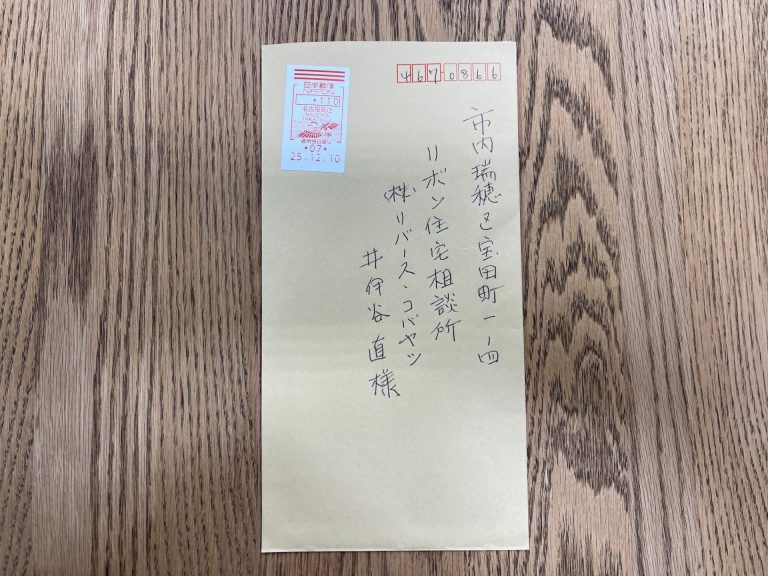 日本郵便
NIPPON
*110
名古屋名辻
*07*
25.12.10
4670866
市内瑞穂区宝田町一ー四
リボン住宅相談所
(株)リバース・コバヤシ
井伊谷直様